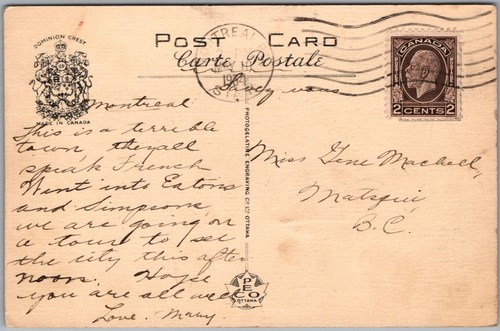 POST CARD
Carte Postale
DOMINION CREST
MADE IN CANADA
MONTREAL
CANADA
2 CENTS 2
Montreal
This is a terrible
town they all
speak French
Went into Eatons
and Simpsons
we are going on
a tour to see
the city this after
noon. Hope
you are all well
Love. Mary.
PHOTOGELATINE ENGRAVING CO. LTD. OTTAWA
PECO
OTTAWA
Miss Gene
Matsqui
B.C.